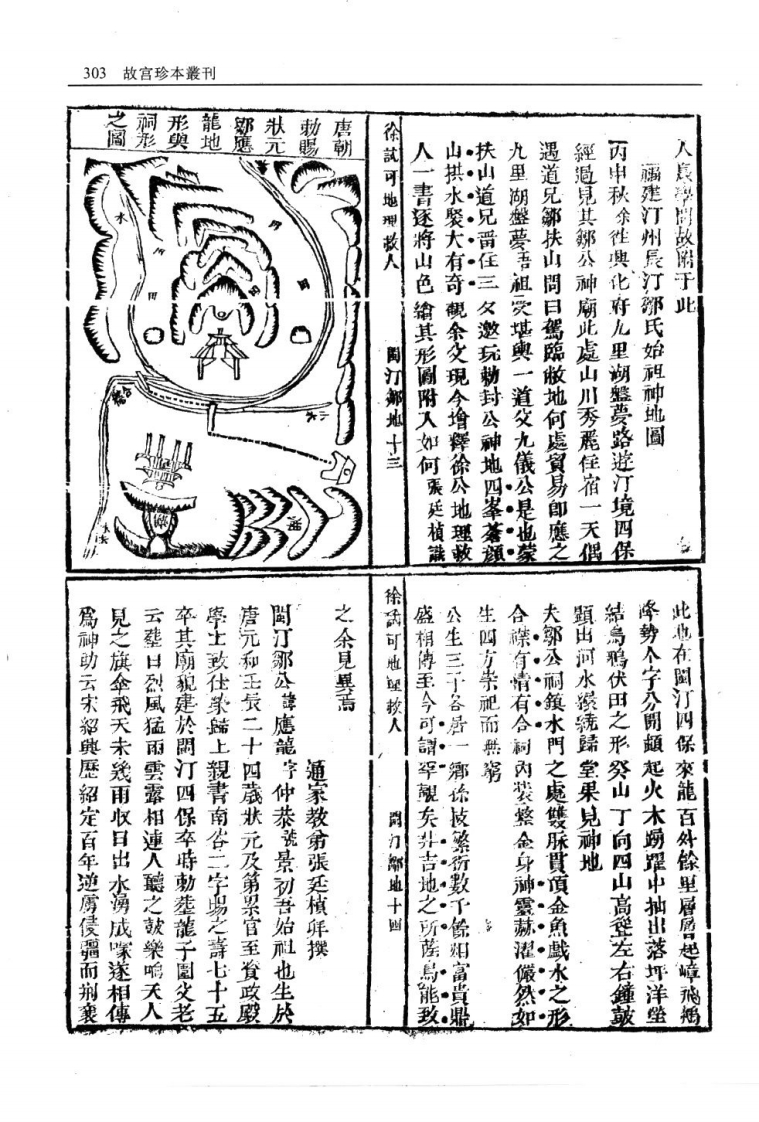 303 故宮珍本叢刊
人長學問故附于此
福建汀州長汀鄒氏始祖神地圖
丙申秋余徃興化府九里湖盤夢路遊汀境四保
經過見其鄒公神廟此處山川秀麗住宿一天偶
遇道兄鄒扶山問曰駕臨敝地何處貿易卽應之
九里湖盤夢吾祖受堪輿一道父九儀公是也蒙
扶山道兄畱住三夕邀玩勅封公神地四峯蒼顔
山拱水聚大有奇觀余父現今增釋徐公地理救
人一書逐將山色繪其形圖附入如何張廷楨識
徐試可地理救人
閩汀鄒地十三
唐朝
勅賜
狀元
鄒應
龍地
形與
祠形
之圖
水
此地在閩汀四保來龍百外餘里層層起嶂飛鵝
降勢个字分開頭起火木踴躍中抽出落坪洋坐
結烏鴉伏田之形癸山丁向四山高聳左右鐘鼓
顯出河水縈繞歸堂果見神地
夫鄒公祠鎮水門之處雙脉貫頂金魚戲水之形
合襟有情有合祠內裝整金身神靈赫濯儼然如
生四方崇祀而無窮
公生三子各居一鄉孫枝繁衍數千餘烟富貴鼎
盛相傳至今可謂罕覯矣非吉地之所蔭烏能致
徐試可地理救人
閩汀鄒地十四
之余見異焉
通家教弟張廷楨拜撰
閩汀鄒公諱應龍字仲恭號景初吾始祖也生於
唐元和壬辰二十四歲狀元及第累官至資政殿
學士致仕榮歸上親書南谷二字賜之壽七十五
卒其廟貌建於閩汀四保卒時勅塟龍子園父老
云塟日烈風猛雨雲霧相連人聽之鼓樂喧天人
見之旗傘飛天未幾雨收日出水湧成塚遂相傳
爲神助云宋紹興歷紹定百年逆虜侵疆而荆襄